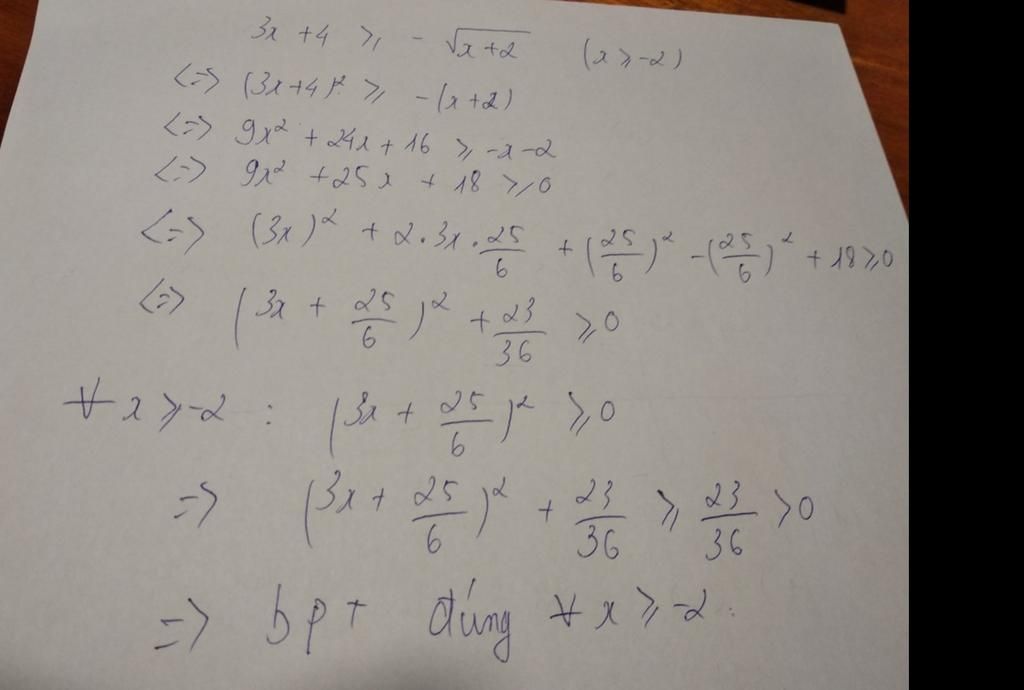 3x + 4 ≥ - √(x+2) (x ≥ -2)
<=> (3x+4)² ≥ -(x+2)
<=> 9x² + 24x + 16 ≥ -x-2
<=> 9x² + 25x + 18 ≥ 0
<=> (3x)² + 2.3x.25/6 + (25/6)² - (25/6)² + 18 ≥ 0
<=> (3x + 25/6)² + 23/36 ≥ 0
∀ x ≥ -2 : (3x + 25/6)² ≥ 0
=> (3x + 25/6)² + 23/36 ≥ 23/36 > 0
=> bpt đúng ∀ x ≥ -2.